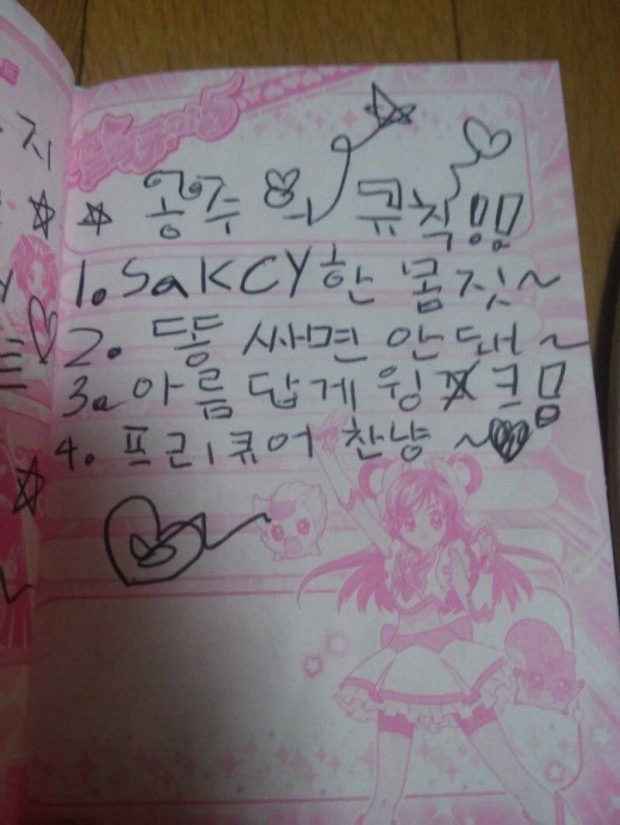 지
공주의 규칙!!
1. SaKCY한 몸짓~
2. 똥 싸면 안돼~
3. 아름답게 윙크!!
4. 프리큐어 찬냥~♥